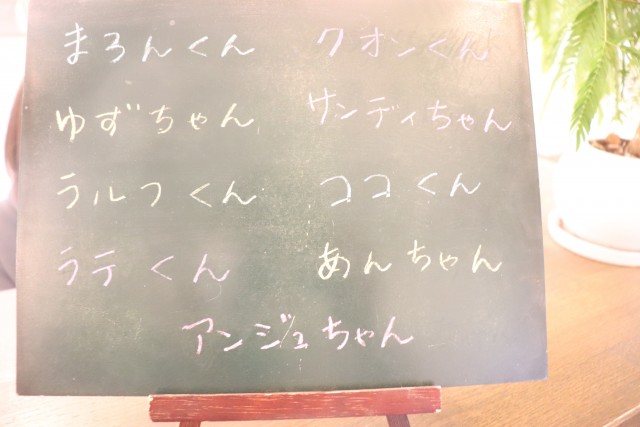 まろんくん クオンくん
ゆずちゃん サンディちゃん
ラルフくん ココくん
ラテくん あんちゃん
アンジュちゃん